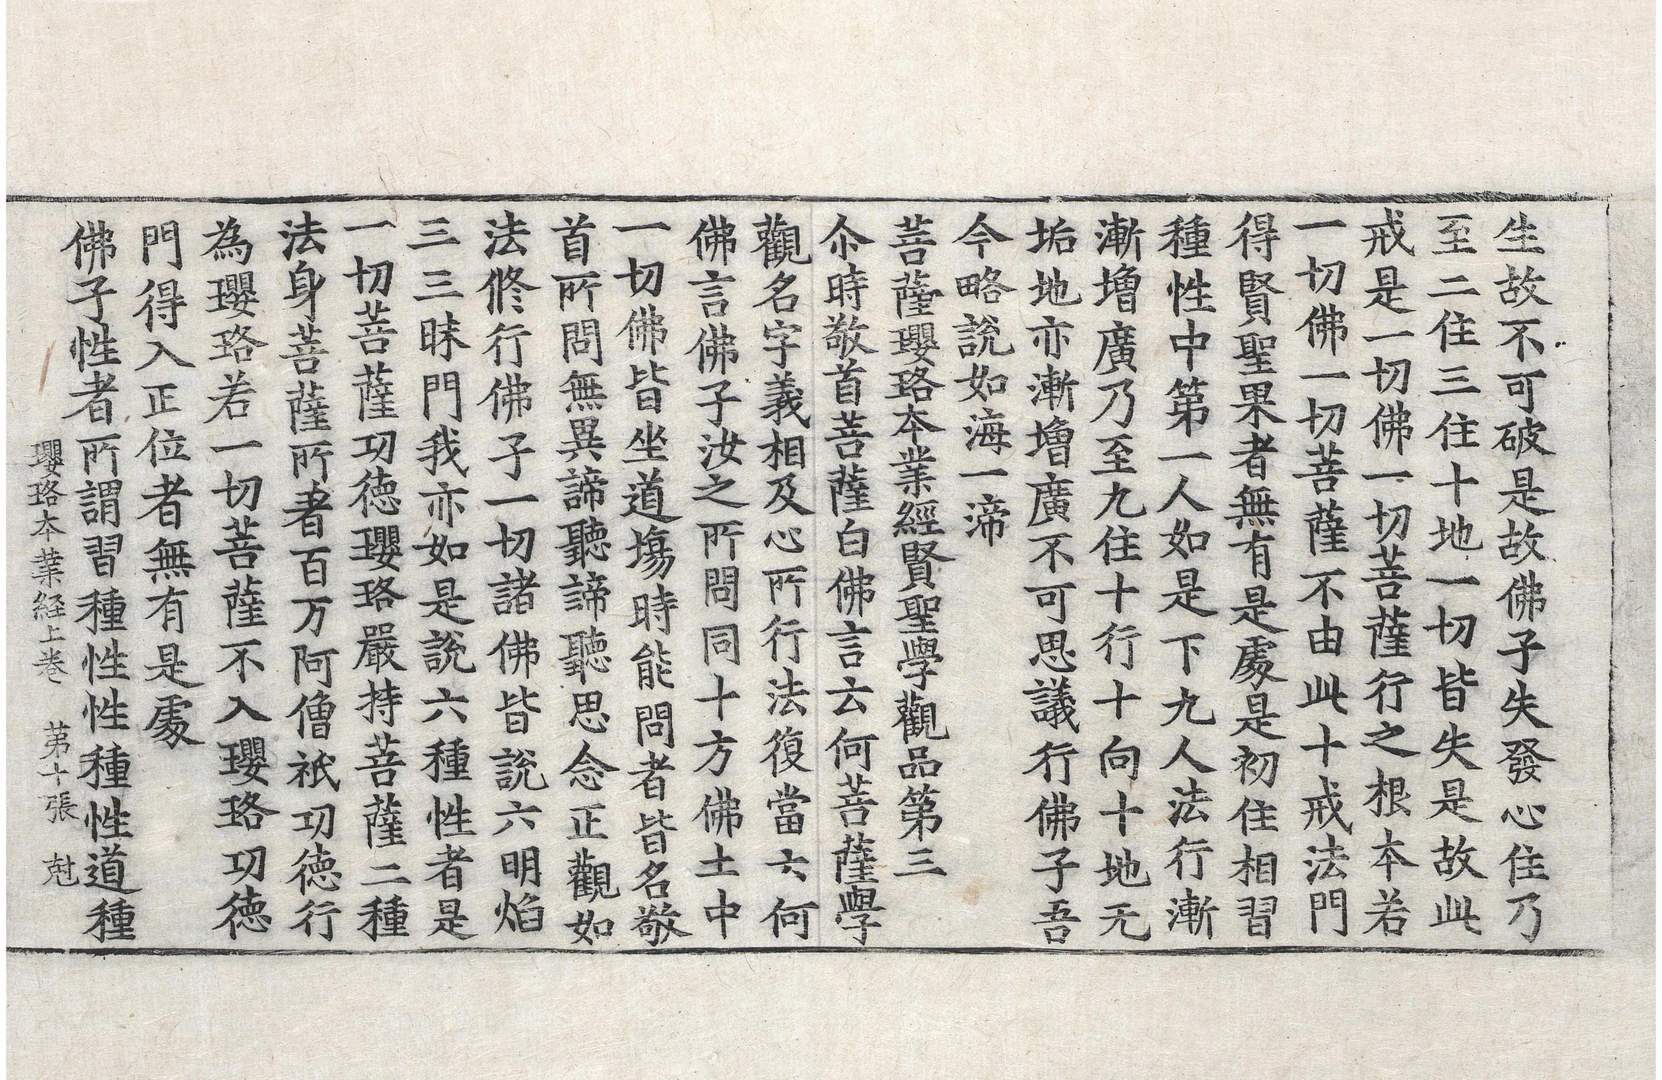 生故不可破是故佛子失發心住乃
至二住三住十地一切皆失是故此
戒是一切佛一切菩薩行之根本若
一切佛一切菩薩不由此十戒法門
得賢聖果者無有是處是初住相習
種性中第一人如是下九人法行漸
漸增廣乃至九住十行十向十地无
垢地亦漸增廣不可思議行佛子吾
今略說如海一渧
菩薩瓔珞本業經賢聖學觀品第三
尒時敬首菩薩白佛言云何菩薩學
觀名字義相及心所行法復當云何
佛言佛子汝之所問同十方佛土中
一切佛皆坐道場時能問者皆名敬
首所問無異諦聽諦聽思念正觀如
法修行佛子一切諸佛皆說六明焰
三三昧門我亦如是說六種性者是
一切菩薩功德瓔珞嚴持菩薩二種
法身菩薩所著百万阿僧祇功德行
為瓔珞若一切菩薩不入瓔珞功德
門得入正位者無有是處
佛子性者所謂習種性性種性道種
瓔珞本業経上卷 第十張 尅